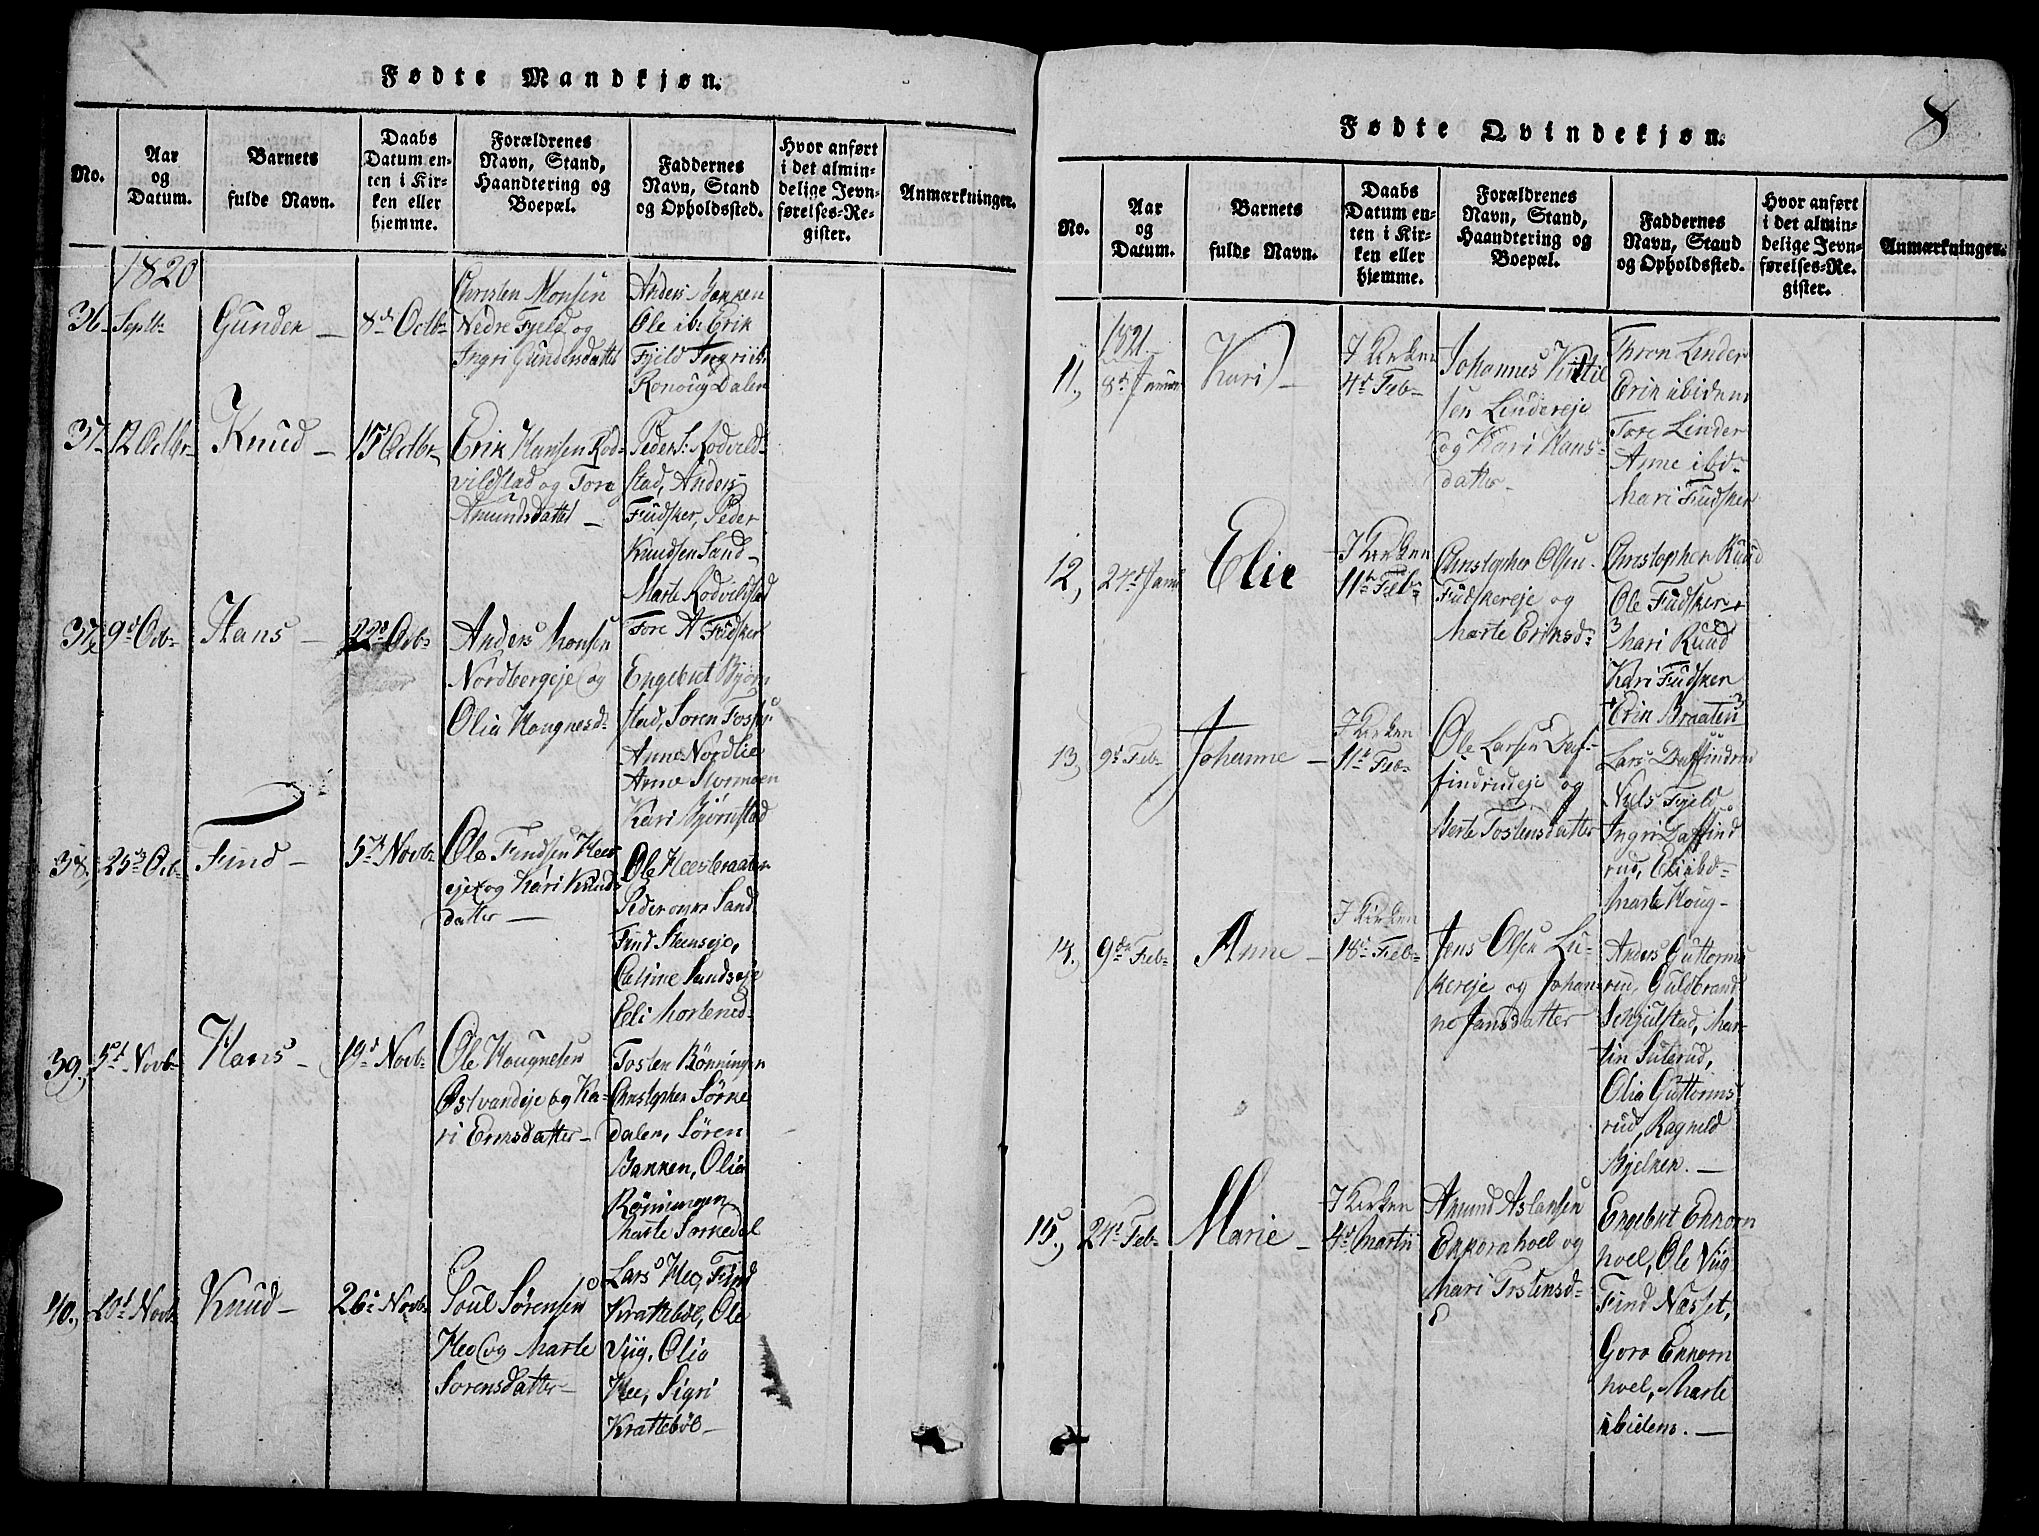 Fødte Mandkjøn.
No.
Aar
og
Datum.
Barnets
fulde Navn.
Daabs
Datum en-
ten i Kir-
ken eller
hjemme.
Forældrenes
Navn, Stand,
Haandtering og
Boepæl.
Faddernes
Navn, Stand
og Opholdssted.
Hvor anført
i det almin-
delige Jevn-
førelses-Re-
gister.
Anmærkninger.
1820
36
Septb:
Gunder
8d Octbr
Christen Monsen
Nedre Fjeld og
Ingri Gundersdatter
Anders Bakken
Ole ib: Erik
Fjeld Ingri ib:
Ronoug Dalen
37
12 Octbr
Knud
15 Octbr
Erik Hansen Rod-
vildstad og Tore
Amundsdatter
Peder S: Rodvild-
stad, Anders
Fudsker, Peder
Knudsen Sand
Marte Rodvildstad
Tore A Fudsker
37
9d Octb
Hans
22d Octb
Anders Monsen
Nordbergeje og
Olia Haugnesd
Engebret Bjørn
stad, Søren Foss
Anne Nordlie
Anne Stormoen
Kari Bjørnstad
38,
25d Oct
Find
5d Novb
Ole Findsen Hee
eje og Kari Knuds
datter
Ole Heesbraaten
Peder Sand
Find Steenseje,
Catrine Sandseje
Eeli Mortensd
39,
5d Novb
Hans
19d Novb
Ole Haugnesen
Østvandeje og Ka-
ri Ericsdatter
Tosten Rønningen
Christopher Sørne
dalen, Søren
Bakken, Olia
Rønningen
Marte Sørnedal
40,
20d Novb
Knud
26d Novb
Poul Sørensen
Hee og Marte
Sørensdatter
Lars Hee, Find
Krattebøl, Ole
Viig, Olia
Hee, Sigri
Krattebøl
8
Fødte Qvindekjøn.
No.
Aar
og
Datum.
Barnets
fulde Navn.
Daabs
Datum en-
ten i Kir-
ken eller
hjemme.
Forældrenes
Navn, Stand,
Haandtering og
Boepæl.
Faddernes
Navn, Stand
og Opholdssted.
Hvor anført
i det almin-
delige Jevn-
førelses-Re-
gister.
Anmærkninger.
1821
11,
8d Januar
Kari
I Kirken
4d Feb
Johannes Kittil
sen Lindereje
og Kari Hans-
datter
Thron Linder
Erik ibidem
Tore Linder
Anne ibd
Mari Fudsker
12,
24d Janu
Elie
I Kirken
11d Feb
Christopher Olsen
Fudskereje og
Marte Eriksd
Christopher Ruud
Ole Fudsker
Mari Ruud
Kari Fudsker
Erik Braaten
13,
9d Feb
Johanne
I Kirken
11d Feb
Ole Larsen Daf-
findrudeje og
Berte Tostensdatter
Lars Daffindrud
Niels Fjeld
Ingri Daffind
rud, Eli ibd
Marte Houg
14,
9de Feb
Anne
I Kirken
18d Feb
Jens Olsen Lu-
kereje og Johan-
ne Jansdatter
Anders Guttorms
rud, Guldbrand
Schjulstad, Mar-
tin Sulerud,
Olia Guttorms
rud, Ragnild
Bjelken.
15,
24d Feb
Marie
I Kirken
4d Martii
Amund Aslansen
Enkornhoel og
Mari Tostensd
Engebret Enkorn
hoel, Ole Viig
Find Næsset,
Goro Enkorn
hoel, Marte
ibidem.